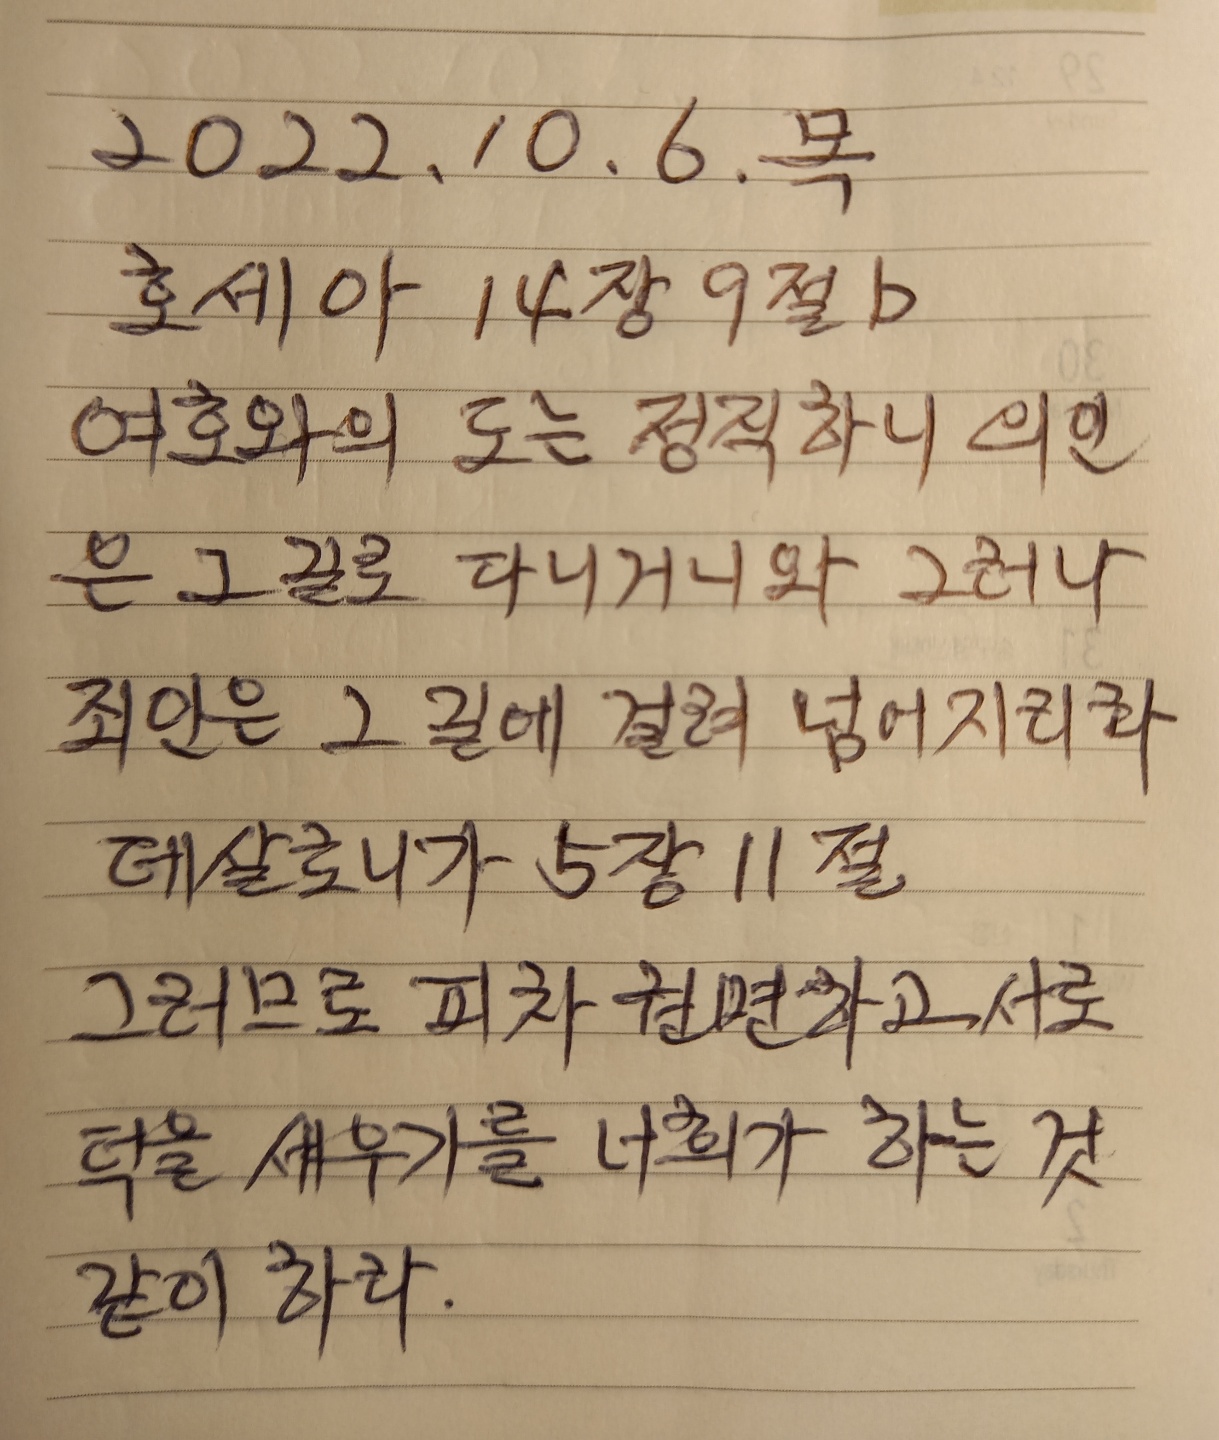 2022.10.6.목
호세아 14장 9절b
여호와의 도는 정직하니 의인
은 그 길로 다니거니와 그러나
죄인은 그 길에 걸려 넘어지리라
데살로니가 5장 11절
그러므로 피차 권면하고 서로
덕을 세우기를 너희가 하는 것
같이 하라.